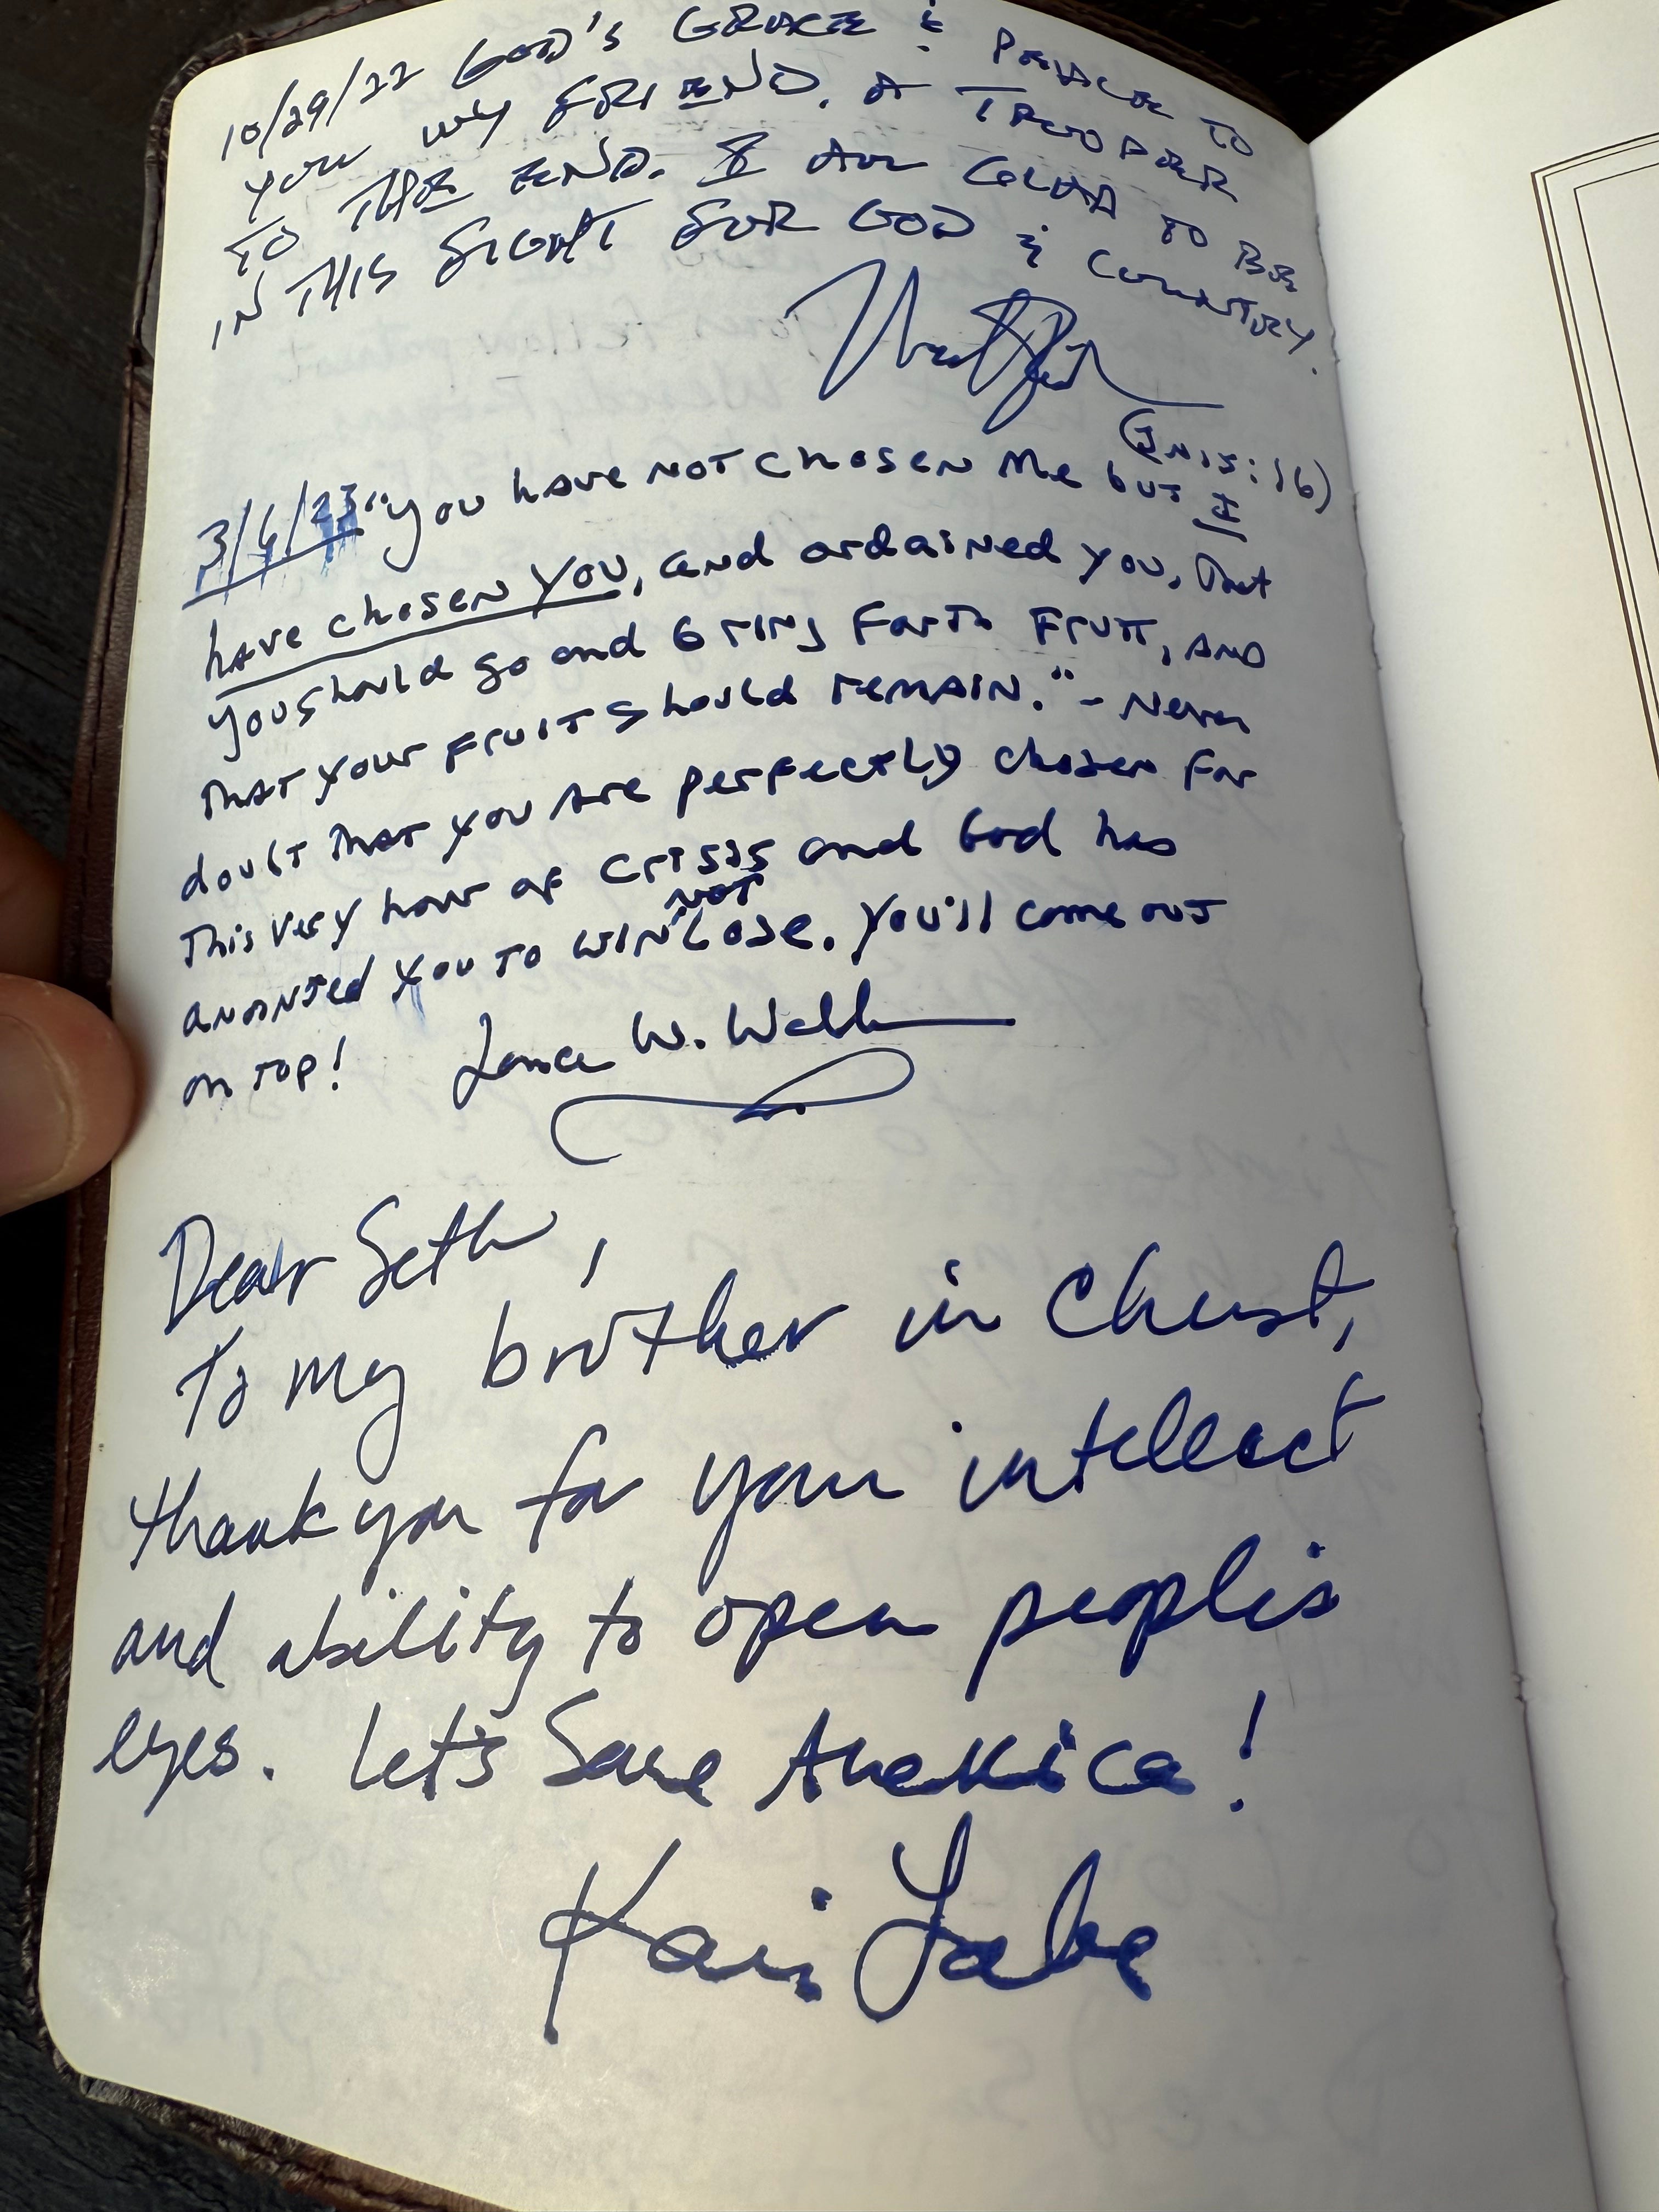 10/29/22 GOD'S GRACE & PEACE TO
YOU MY FRIEND. A TROOPER
TO THE END. I AM GLAD TO BE
IN THIS FIGHT FOR GOD & COUNTRY.
(JN 15:16)
3/6/23 "you have NOT chosen Me but I
have chosen you, and ordained you, That
you should go and bring Forth Fruit, AND
That your Fruit should remain." - Never
doubt That you Are perfectly chosen for
This very hour of Crisis and God has
NOT
anointed you to WIN LOSE. You'll come out
on top! Lance W. Wallnau
Dear Seth,
To my brother in Christ,
thank you for your intellect
and ability to open people's
eyes. Let's Save America!
Kari Lake